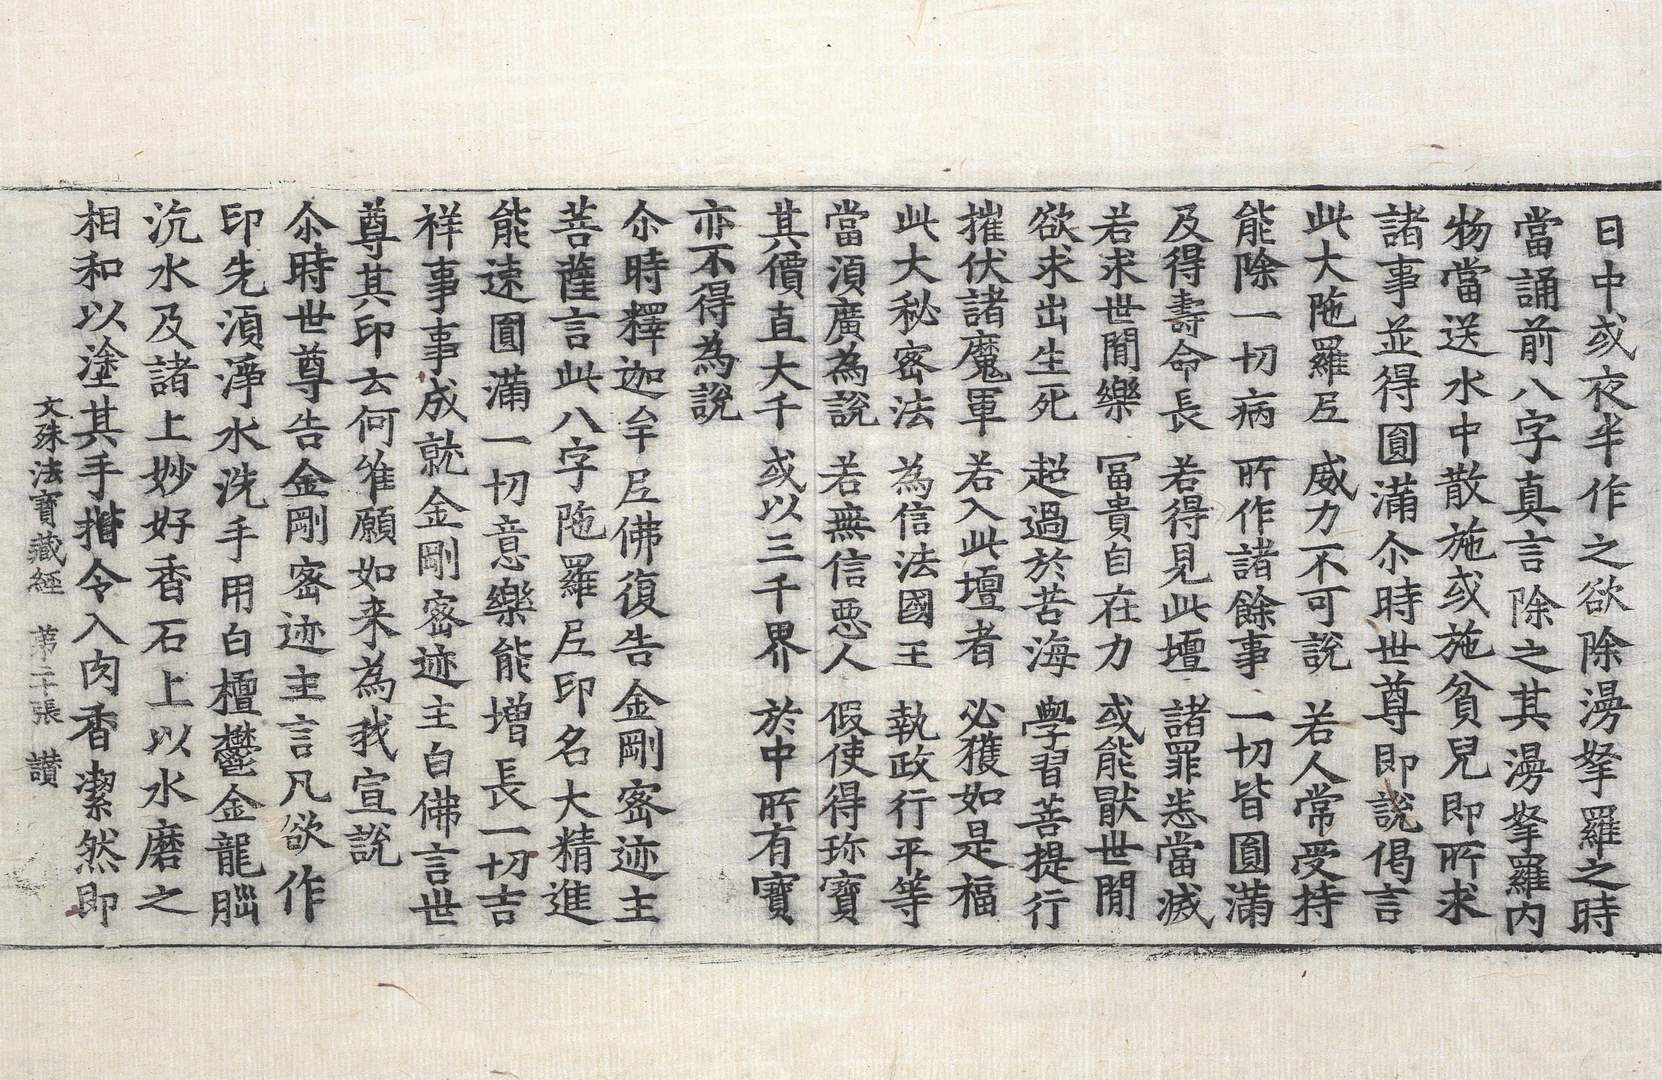 日中或夜半作之欲除漫拏羅之時
當誦前八字真言除之其漫拏羅内
物當送水中散施或施貧兒即所求
諸事並得圓滿尒時世尊即說偈言
此大陁羅𡰱　威力不可說　若人常受持
能除一切病　所作諸餘事　一切皆圓滿
及得壽命長　若得見此壇　諸罪悉當滅
若求世間樂　冨貴自在力　或能猒世間
欲求出生死　超過於苦海　學習菩提行
摧伏諸魔軍　若入此壇者　必獲如是福
此大秘密法　為信法國王　執政行平等
當湏廣為說　若無信惡人　假使得珎寶
其價直大千　或以三千界　於中所有寶
亦不得為說
尒時釋迦牟𡰱佛復告金剛密迹主
菩薩言此八字陁羅𡰱印名大精進
能速圓滿一切意樂能增長一切吉
祥事事成就金剛密迹主白佛言世
尊其印云何唯願如来為我宣說
尒時世尊告金剛密迹主言凡欲作
印先湏淨水洗手用白檀鬱金龍腦
沉水及諸上妙好香石上以水磨之
相和以塗其手揩令入肉香潔然即
文殊法寶藏經　第二十張　讃